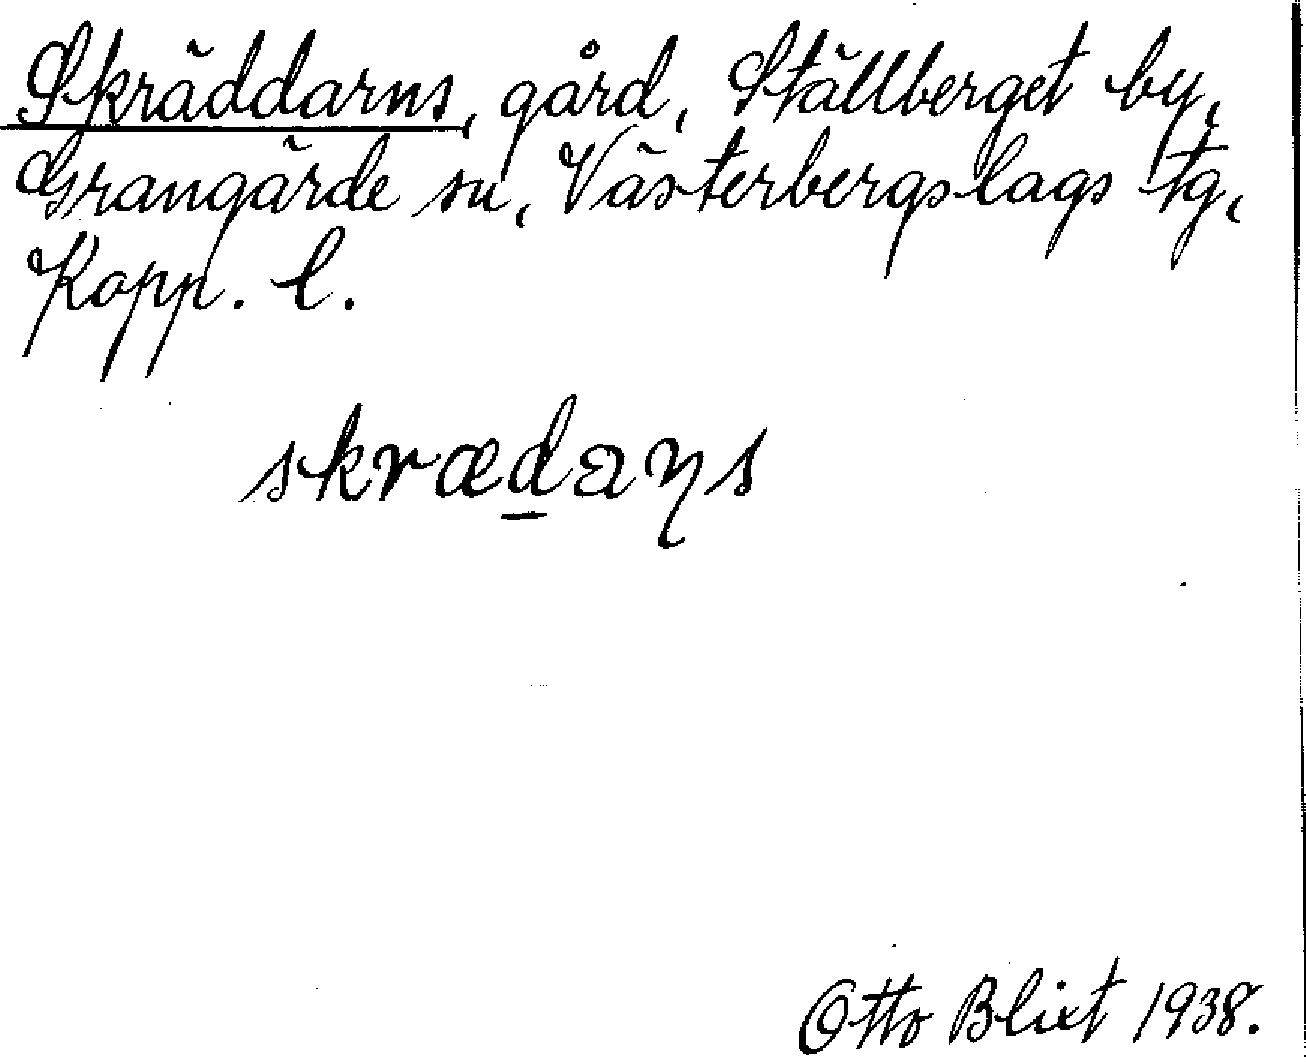 Skräddarns, gård, Ställberget by,
Grangärde sn, Västerbergslags tg,
Kopp. l.
skræd̲aɳs
Otto Blixt 1938.